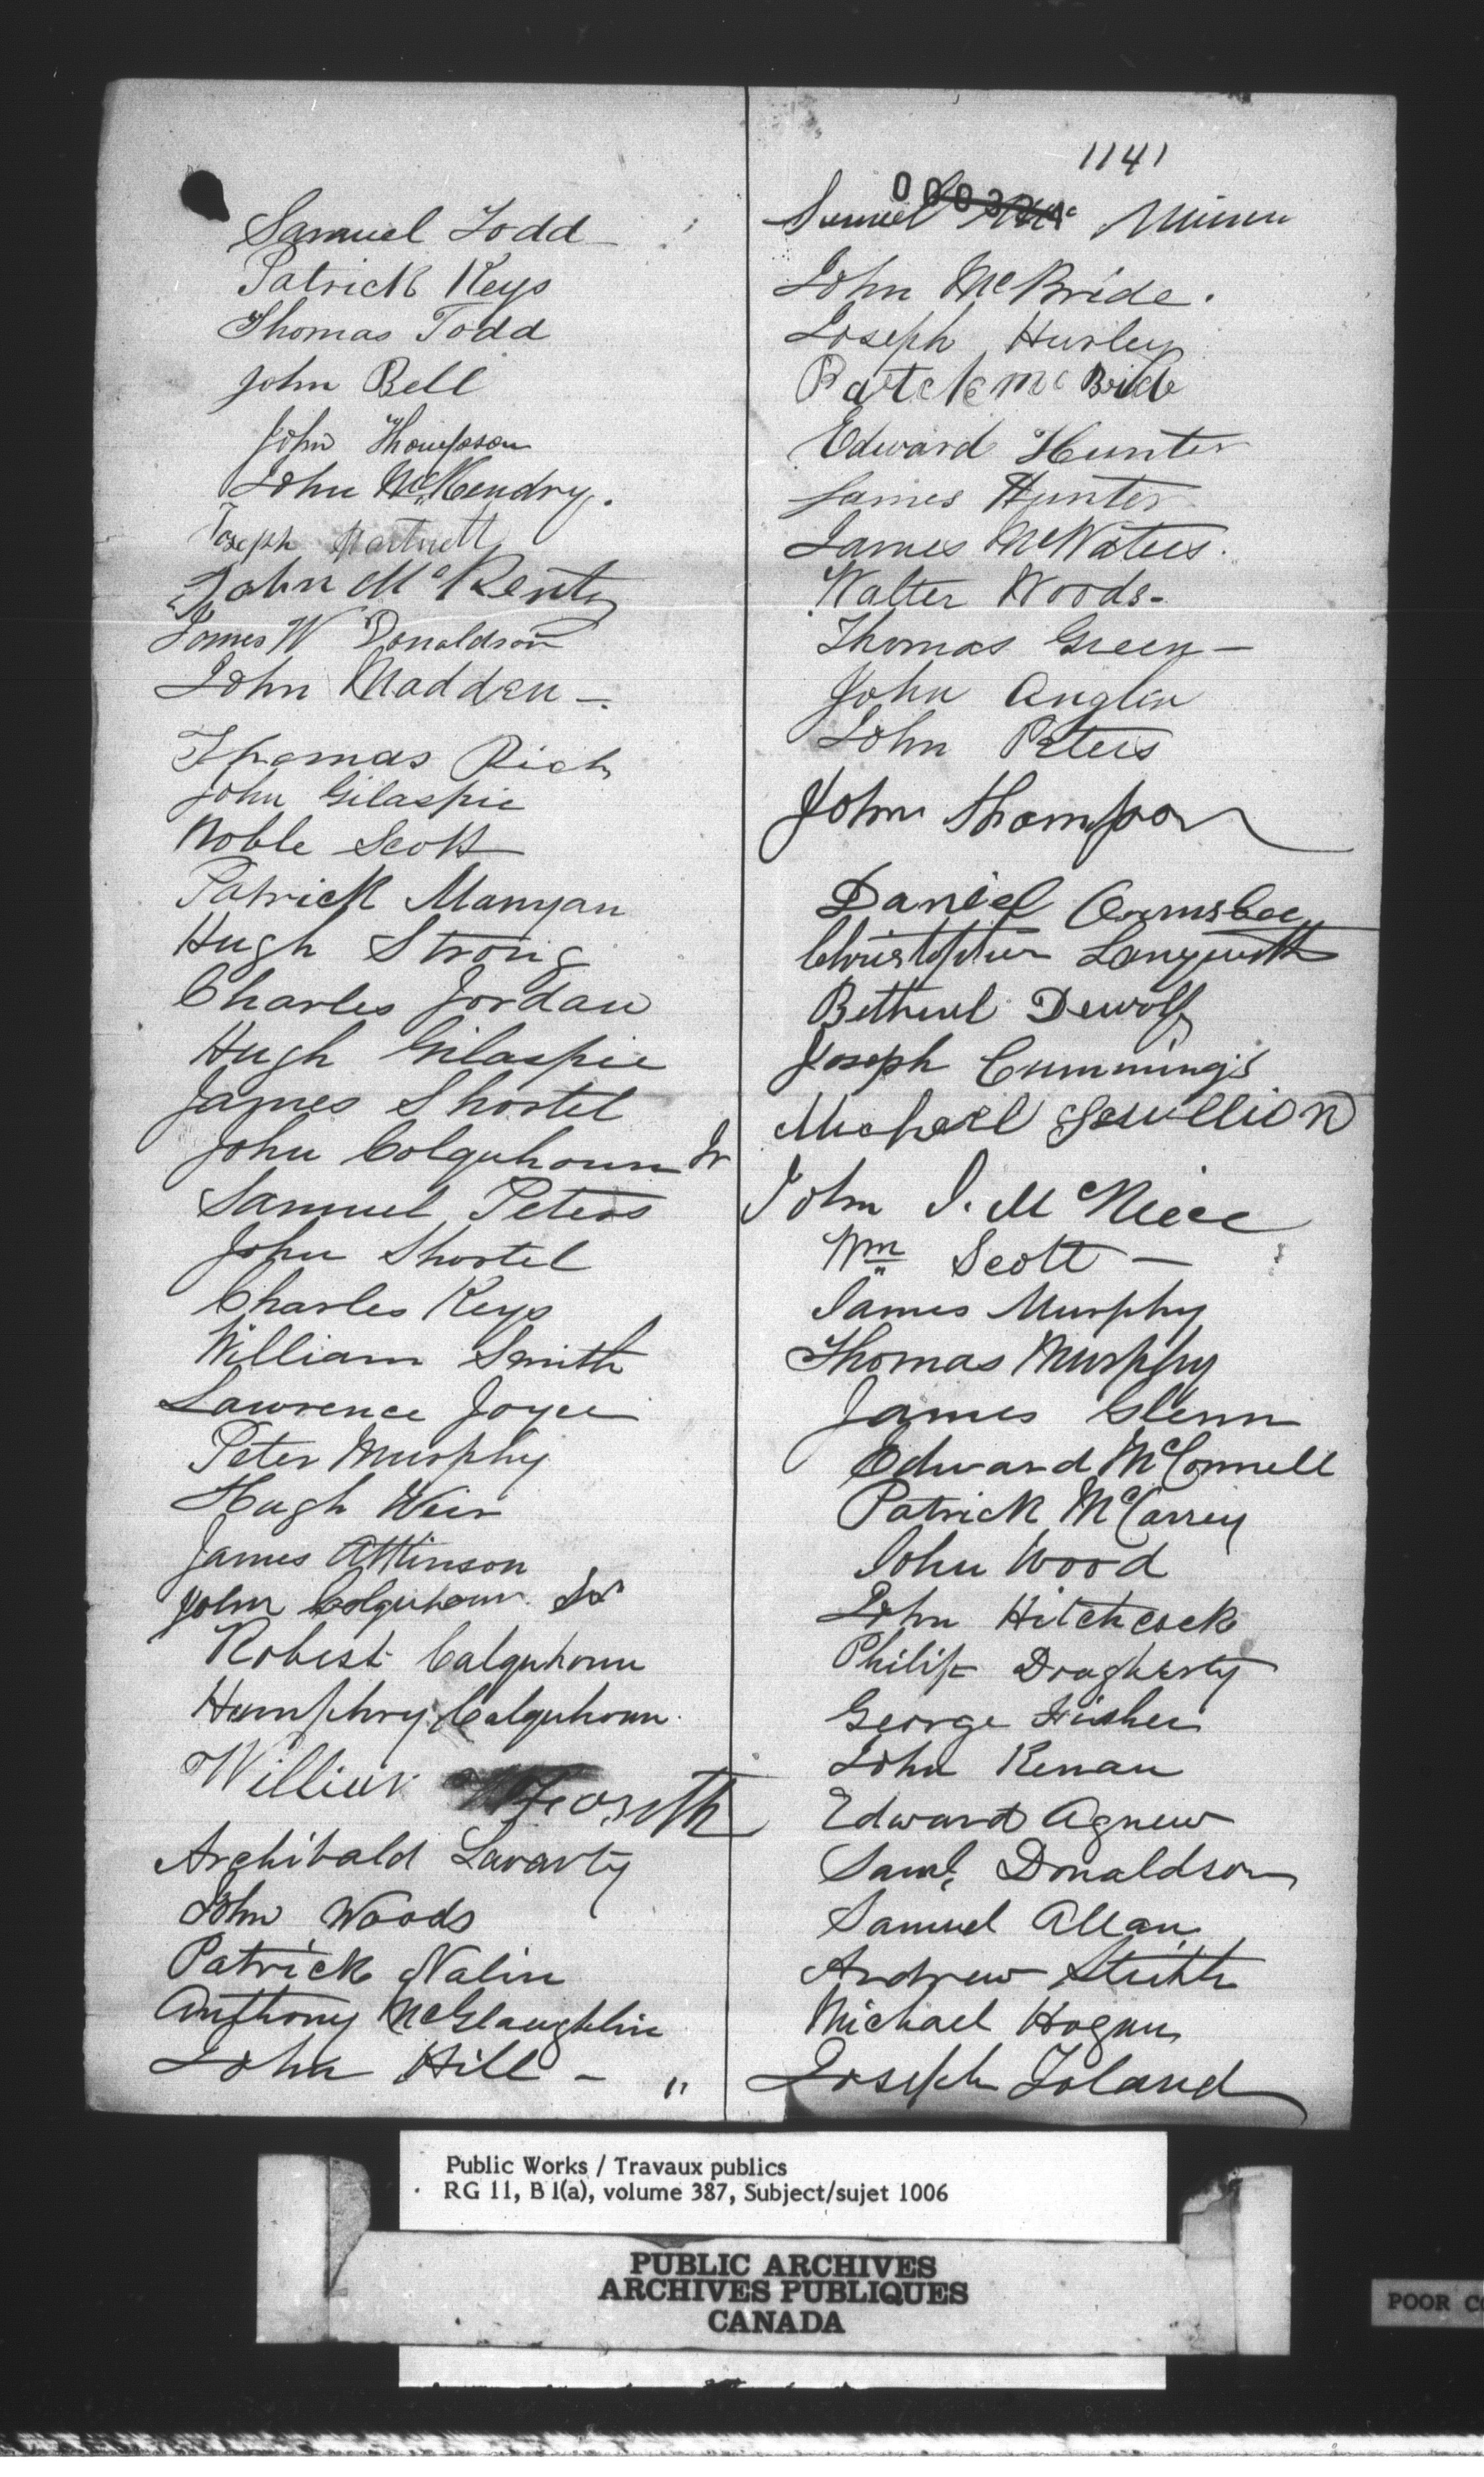 Samuel Todd
Patrick Keys
Thomas Todd
John Bell
John Thompson
John McKendry.
Joseph Hartnett
John McKenty
James W Donaldson
John Madden -
Thomas Rich
John Gilaspie
Noble Scott
Patrick Mangan
Hugh Strong
Charles Jordan
Hugh Gilaspie
James Shortel
John Colquhoun Jr
Samuel Peters
John Shortel
Charles Keys
William Smith
Lawrence Joyce
Peter Murphy
Hugh Weir
James Attinson
John Colquhoun Sr
Robert Calquhoun
Humphry Calquhoun
William
Archibald Lavarty
John Woods
Patrick Nalin
Anthony McGlaughlin
John Hill - "
1141
Samuel Mc
John McBride.
Joseph Hurley
Patck McBride
Edward Hunter
James Hunter
James McWaters.
Walter Woods -
Thomas Green -
John Anglin
John Peters
John Thompson
Daniel Ormsbee
Christopher Langwith
Bethuel Dewolf
Joseph Cummings
Michael
John J. McNiece
Wm Scott -
James Murphy
Thomas Murphy
James Glenn
Edward McConnell
Patrick McCarrey
John Wood
John Hitchcock
Philip Drogherty
George Fisher
John Kenan
Edward Agnew
Saml. Donaldson
Samuel Allan
Andrew
Michael Hogan
Joseph Toland
Public Works / Travaux publics
RG 11, B 1(a), volume 387, Subject/sujet 1006
PUBLIC ARCHIVES
ARCHIVES PUBLIQUES
CANADA
POOR